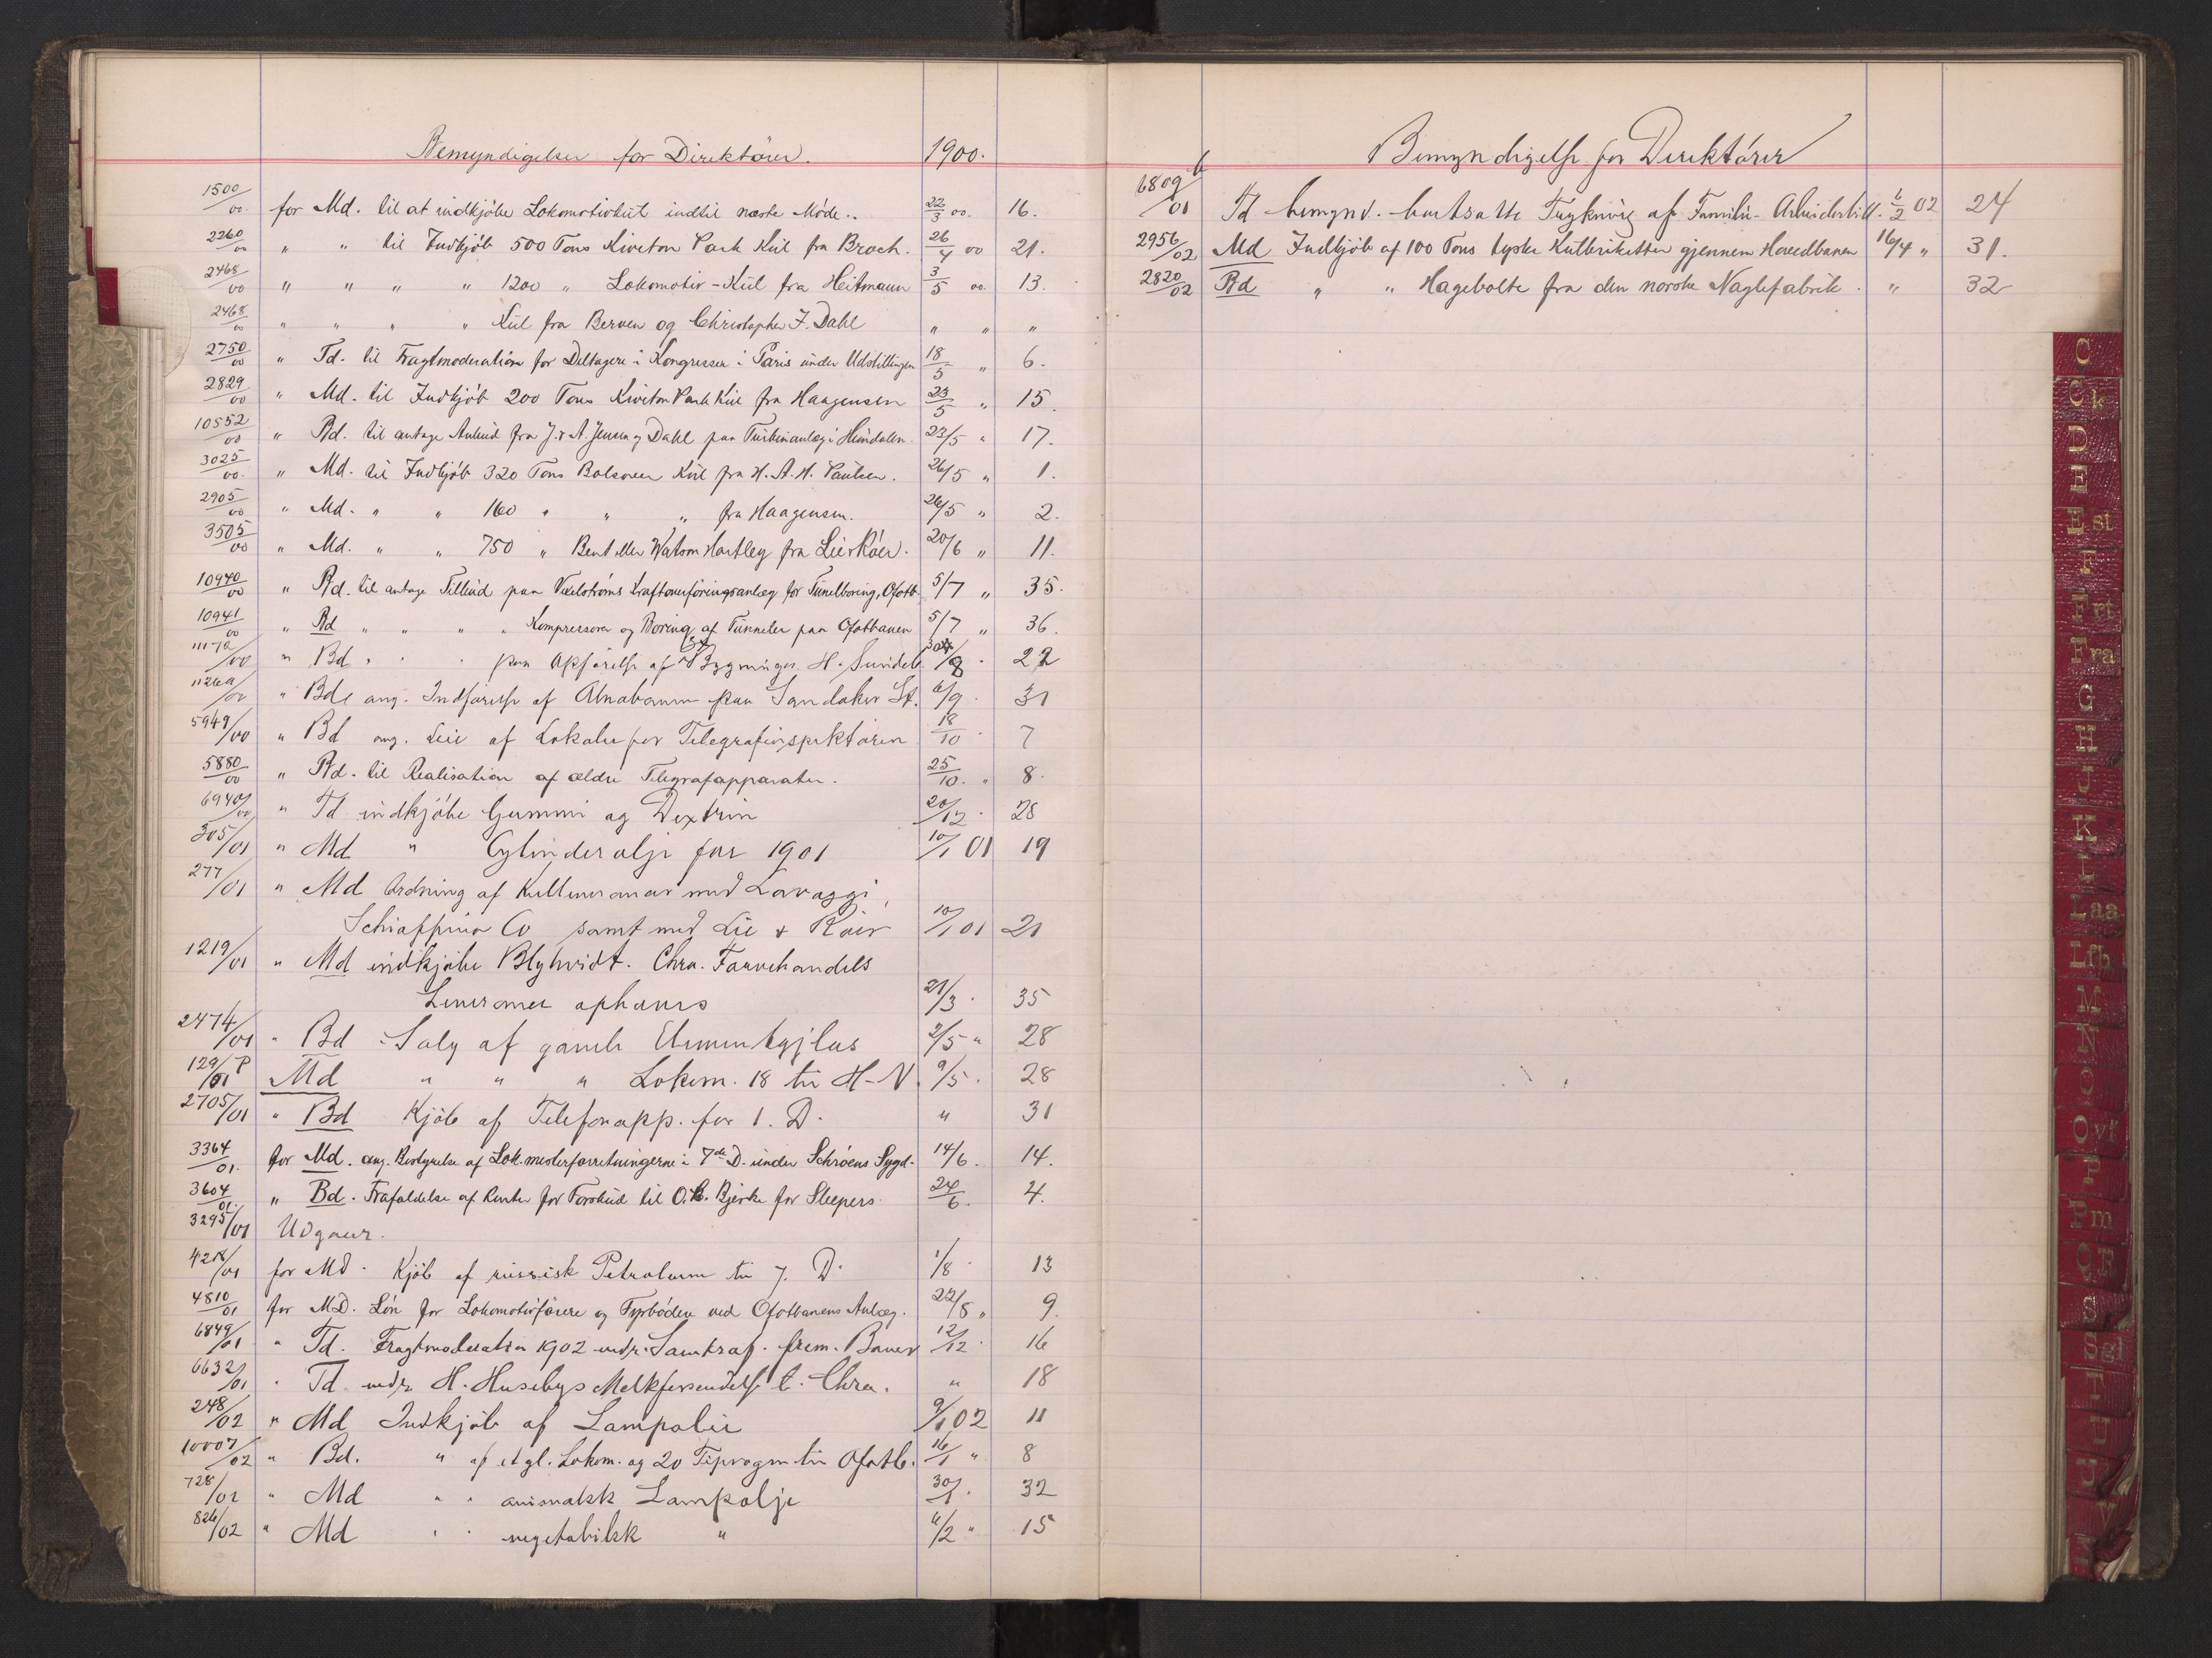 Bemyndigelser for Direktörer. 1900.
1500/00. for Md. til at indkjöbe Lokomotivkul indtil næste Möde.. 22/3 00. 16.
2260/00 " " til Indkjöb 500 Tons Kiveton Park Kul fra Broch. 26/4 00 21.
2468/00 " " " " 1200 " Lokomotiv-Kul fra Heitmann 3/5 00. 13.
2468/00 " " " " Kul fra Berven og Christopher F. Dahl " " "
2750/00 " Td. til Fragtmoderation for Deltagere i Kongresser i Paris under Udstillingen 18/5 " 6.
2829/00 " Md. til Indkjöb 200 Tons Kiveton Park Kul fra Haagensen 23/5 " 15.
10552/00 " Bd. til antage Anbud fra J. & A. Jensen og Dahl paa Turbinanlæg i Hundalen. 23/5 " 17.
3025/00. " Md. til Indkjöb 320 Tons Bolsover Kul fra H. A. H. Paulsen. 26/5 " 1.
2905/00 " Md. " " 160 " " " fra Haagensen. 26/5 " 2.
3505/00 " Md. " " 750 " Bent eller Watson Hartley fra Lie & Röer. 20/6 " 11.
10940/00 " Bd. til antage Tilbud paa Vexelströms Kraftoverföringsanlæg for Tunelboring, Ofotb. 5/7 " 35.
10941/00 " Bd " " " " Kompressorer og Boring af Tunneler paa Ofotbanen 5/7 " 36.
/00 " Bd " " " paa Opförelse af Bygninger H. Sundet /8 " 22
/00 " Bd ang. Indförelse af Alnabanen paa Sandaker St. 6/9 " 31
5949/00 " Bd ang. Leie af Lokaler for Telegrafinspektören 18/10 " 7
5880/00 " Bd. til Realisation af ældre Telegrafapparater. 25/10. " 8.
6940/00 " Td indkjöbe Gummi og Dextrin 20/12 " 28
305/01 " Md " Cylinderolje for 1901 10/1 01 19
277/01 " Md Ordning af Kulleverancer med Lavaggi,
Schiaffino Co samt med Lie & Röer 10/1 01 21
1219/01 " Md indkjöbe Blyhvidt. Chra. Farvehandels
Leverance ophæves 21/3 " 35
2474/01 " Bd Salg af gamle 2/5 " 28
129/01 P Md " " " Lokom. 18 til H-N. 9/5 " 28
2705/01 " Bd Kjöb af Telefonapp. for 1. D. " 31
3364/01. for Md. ang. Bestyrelse af Lok.mesterforretningerne i 7de D. under Schröens Sygd. 14/6. 14.
3604/01. " Bd. Frafaldelse af Renter for Forskud til O. B. Bjerke for Sleepers. 24/6. 4.
3295/01 Udgaar.
4218/01 for Md. Kjöb af russisk Petroleum til 7. D. 1/8 " 13
4810/01 for MD. Lön for Lokomotivförere og Fyrbödere ved Ofotbanens Anlæg. 22/8 " 9.
6849/01 " Td. Fragtmoderation 1902 vedr. Samtraf. frem. Baner 12/12 " 16
6632/01 " Td. vedr. H. Husebys Melkforsendelse t. Chra. " 18
248/02 " Md Indkjöb af Lampolie 9/1 02 11
10007/02 " Bd. " af et gl. Lokom. og 20 Tipvogne til Ofotb. 16/1 " 8
728/02 " Md " " animalsk Lampolje 30/1 " 32
826/02 " Md " " vegetabilsk " 6/2 " 15
Bemyndigelse for Direktörer
6809/01 Td bemynd. bortsatte Trykning af Familie- Arbeiderbill. 6/2 02 24
2956/02 Md Indkjöb af 100 Tons tyske Kulbriketter gjennem Hovedbanen 16/4 " 31.
2820/02 Bd " " Hagebolte fra den norske Naglefabrik. " 32
C
Ck
D
E
Est
F
Frt
Fra
G
H
J
K
L
Laa
Lfb
M
N
O
Ovf
P
Pm
QR
S
Sgl
T
U
V